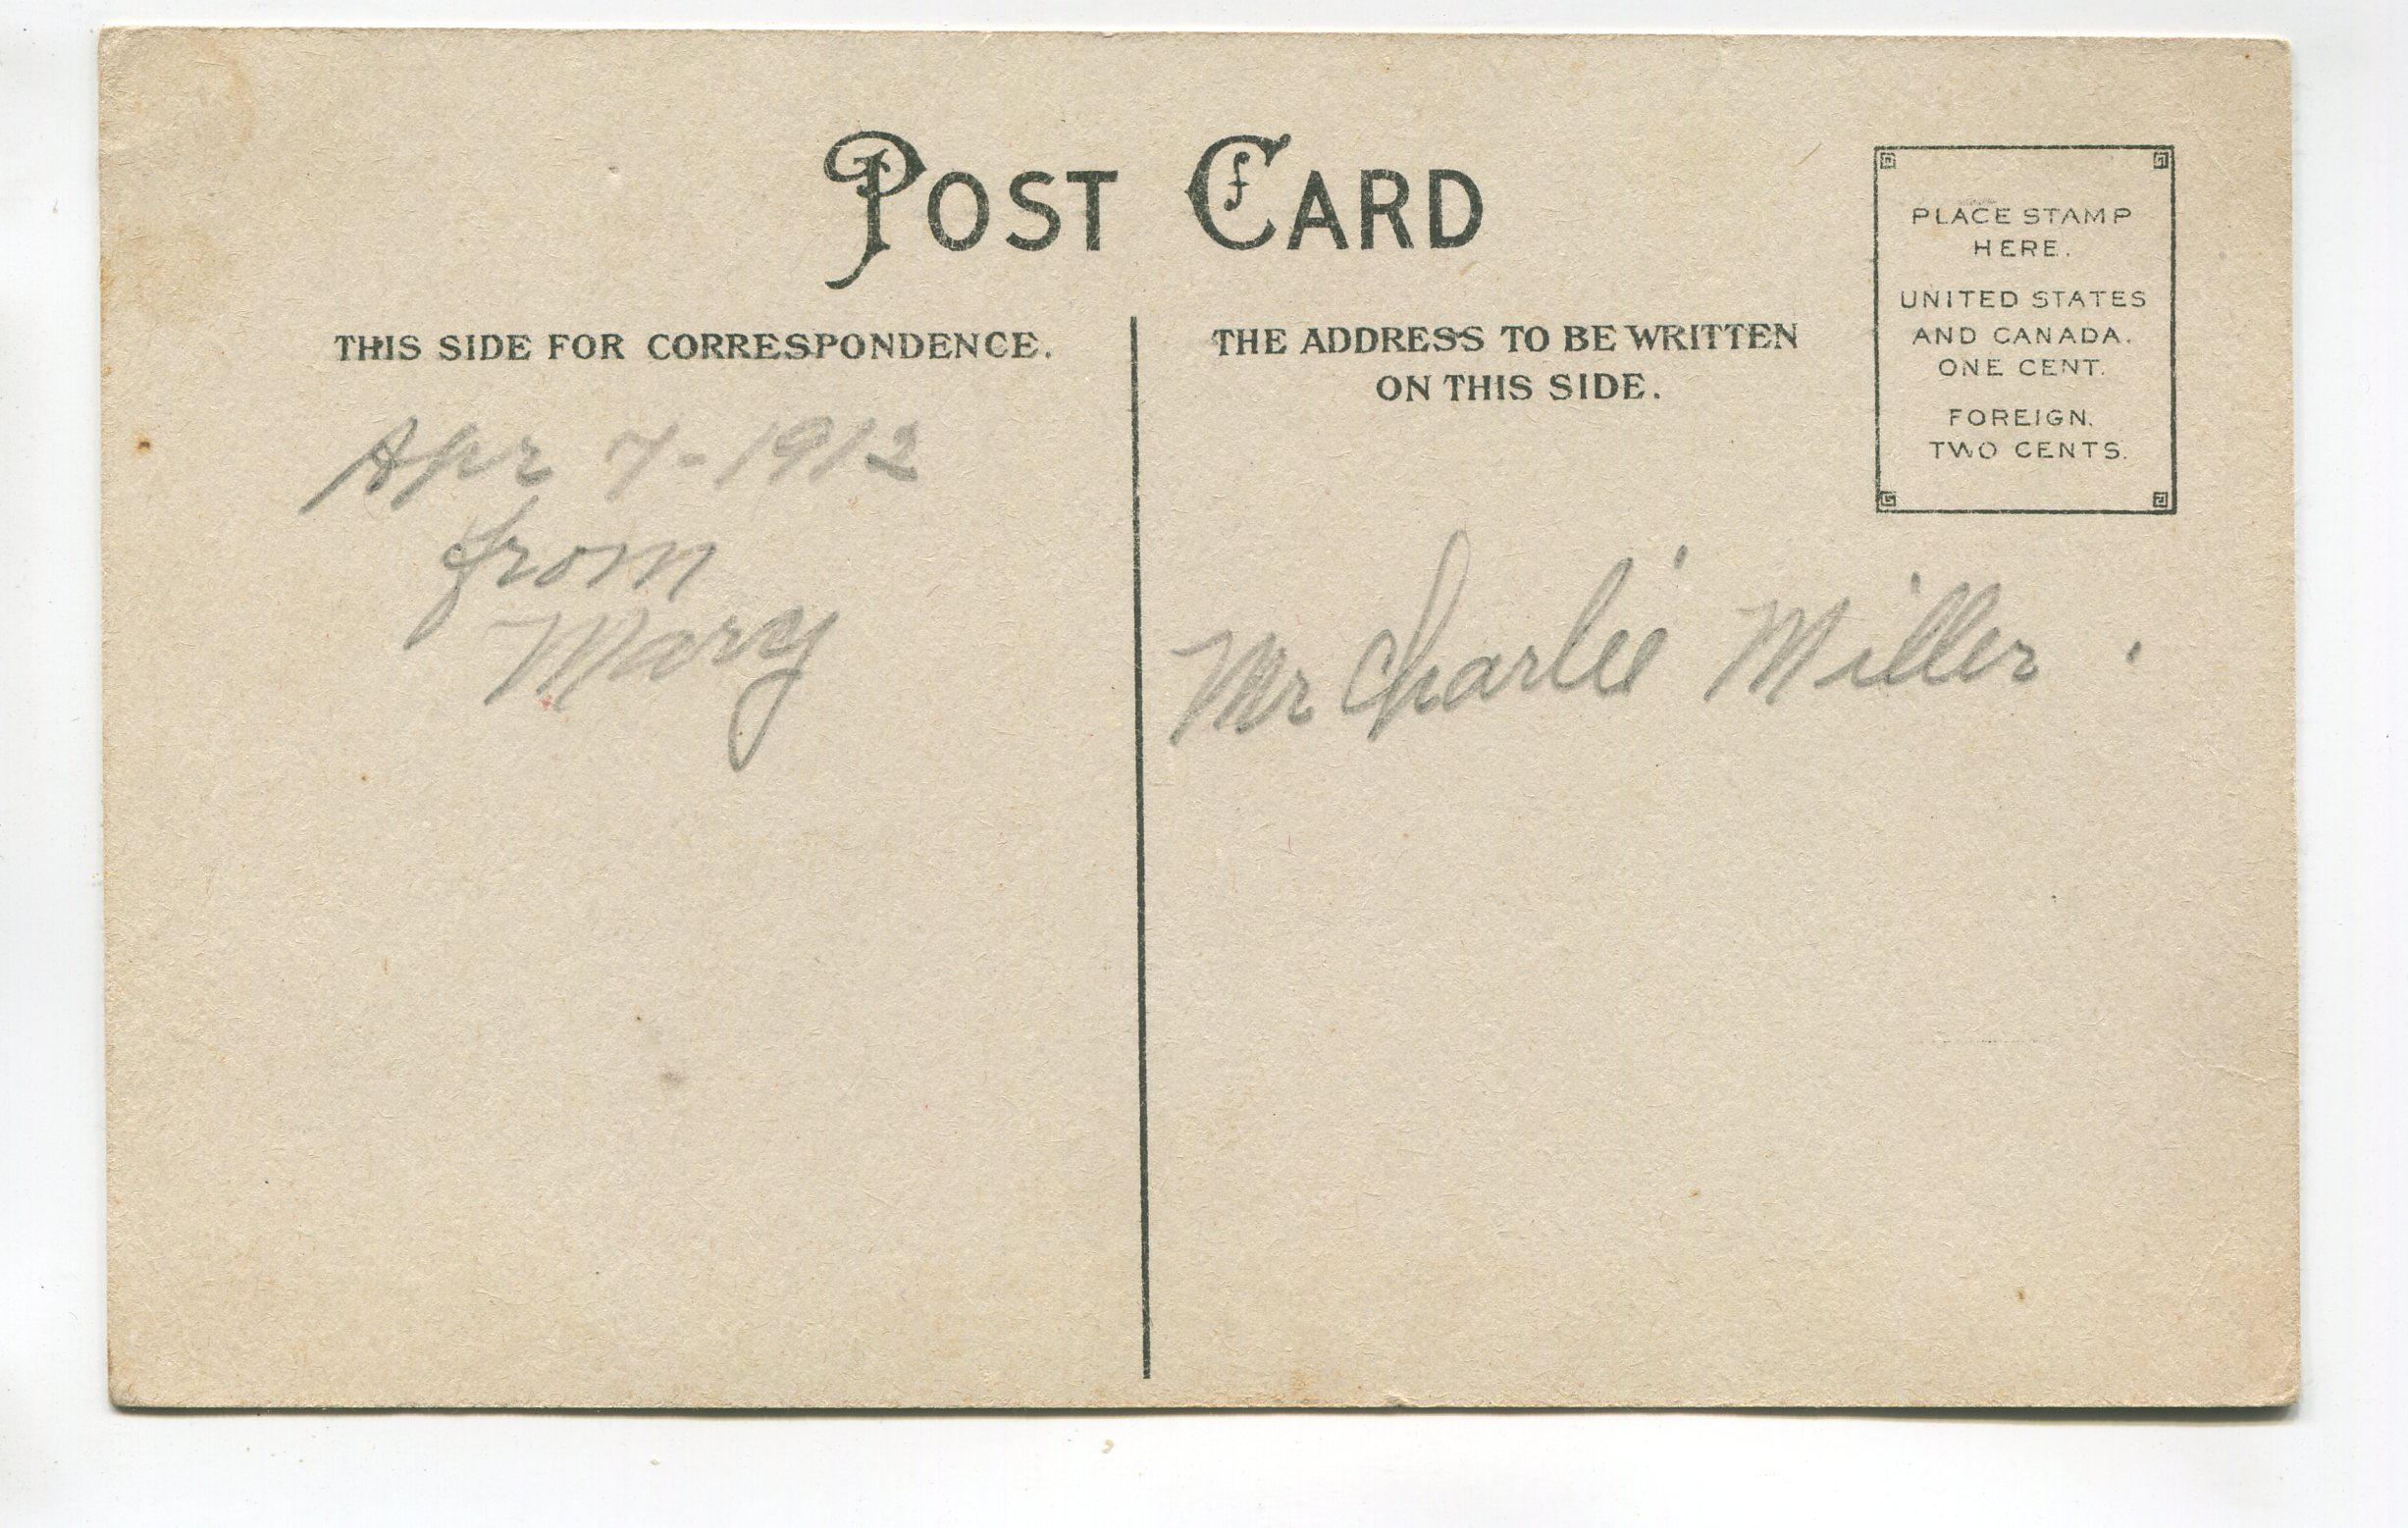 POST CARD
THIS SIDE FOR CORRESPONDENCE.
Apr 7-1912
from
Mary
THE ADDRESS TO BE WRITTEN
ON THIS SIDE.
PLACE STAMP
HERE.
UNITED STATES
AND CANADA.
ONE CENT.
FOREIGN.
TWO CENTS.
Mr Charlie Miller.